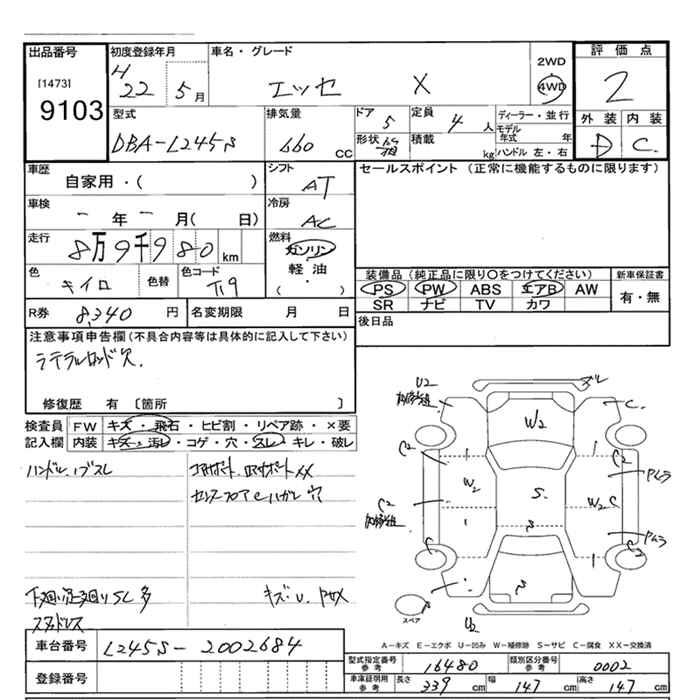 出品番号
[1473]
9103
初度登録年月
H 22 5月
車名・グレード
エッセ X
2WD
4WD
評価点
2
型式
DBA-L245S
排気量
660 CC
ドア
5
形状
定員
4人
積載
kg
ディーラー・並行
モデル年式 年
ハンドル 左・右
外装 内装
D C
車歴
自家用・( )
シフト
AT
セールスポイント (正常に機能するものに限ります)
車検
- 年 - 月( 日)
冷房
AC
走行
8万9千980km
燃料
ガソリン
軽油
・
( )
色
キイロ
色替
色コード
装備品(純正品に限り○をつけてください)
PS PW ABS エアB AW
SR ナビ TV カワ
新車保証書
有・無
R券 8,340 円
名変期限 月 日
後日品
注意事項申告欄(不具合内容等は具体的に記入して下さい)
ラテラルロッド欠.
修復歴 有 〔箇所 〕
検査員記入欄
FW キズ・飛石・ヒビ割・リペア跡・×要
内装 キズ・汚レ・コゲ・穴・スレ・キレ・破レ
ハンドル.ノブスレ
コアサポート. ロアサポートXX
センターフロアCハガレ 穴
下廻り足廻りSL 多
キズ. U. アサメ
スタッドレス
U2
C
W2
C2
C2
W2
S
W2 C
C2
C
C
スペア
U2
A-キズ E-エクボ U-凹み W-補修跡 S-サビ C-腐食 XX-交換済
車台番号 L245S-2002684
登録番号
型式指定番号参考 16480
類別区分番号参考 0002
車庫証明用参考 長さ 339 cm 幅 147 cm 高さ 147 cm